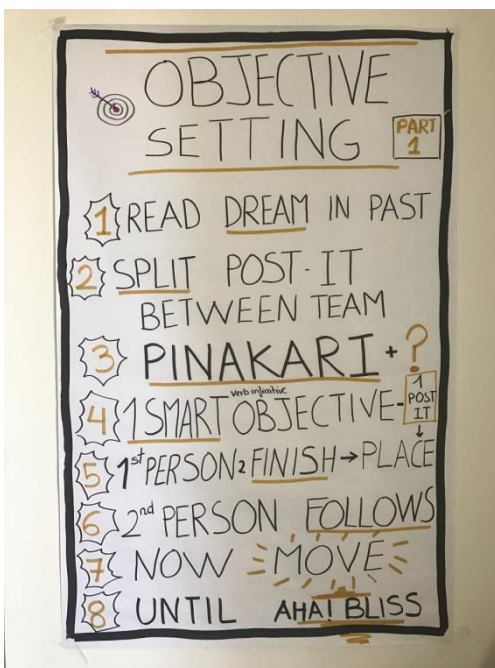 OBJECTIVE
SETTING
PART
1
1 READ DREAM IN PAST
2 SPLIT POST-IT
BETWEEN TEAM
3 PINAKARI + ?
verb infinitive
4 1 SMART OBJECTIVE - 1
POST
IT
5 1st PERSON 2 FINISH → PLACE
6 2nd PERSON FOLLOWS
7 NOW MOVE
8 UNTIL AHA! BLISS